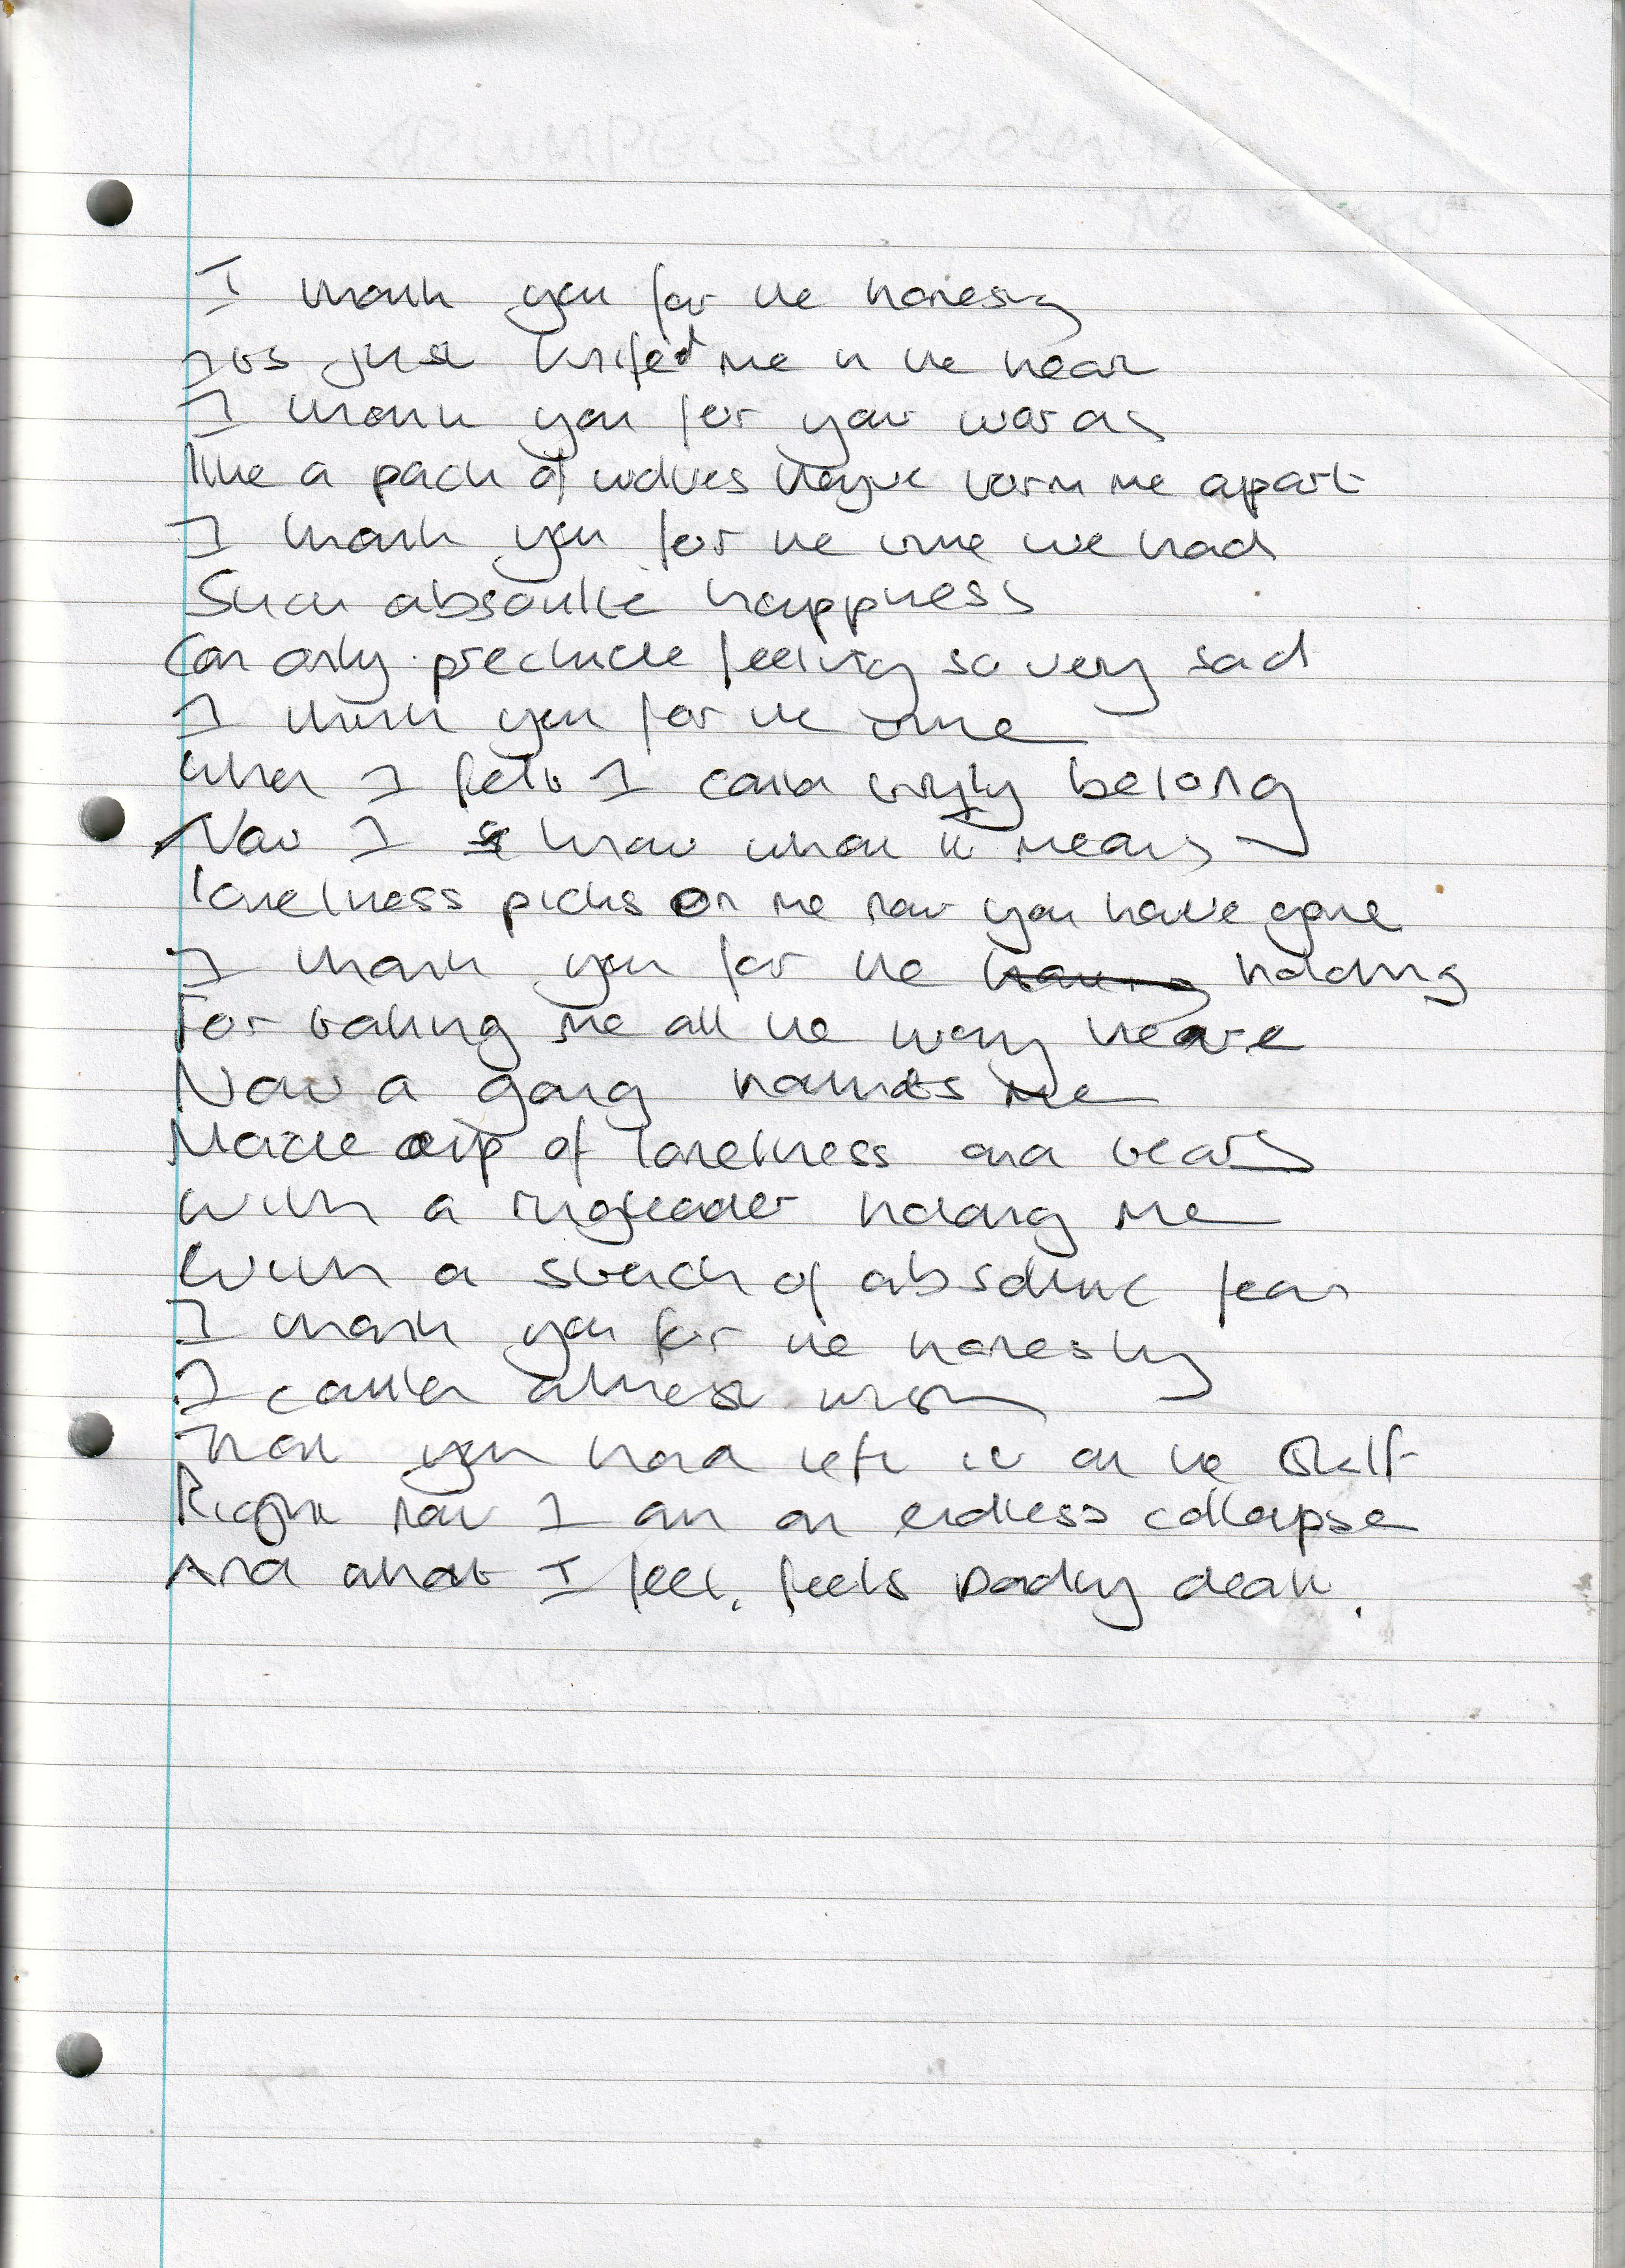 I thank you for the honesty
Its just knifed me in the heart
I thank you for your words
like a pack of wolves they've torn me apart
I thank you for the time we had
Such absoulte happness
Can only preclude feeling so very sad
I thank you for the time
when I felt I could truly belong
Now I know what it means
lonelness picks on me now you have gone
I thank you for the holding
For taking me all the way here
Now a gang haunts me
Made up of lonelness and tears
With a ringleader holding me
With a stench of absolute fear
I thank you for the honesty
I could almost wish
That you had left it on the shelf
Right now I am an endless collapse
And what I feel, feels dark